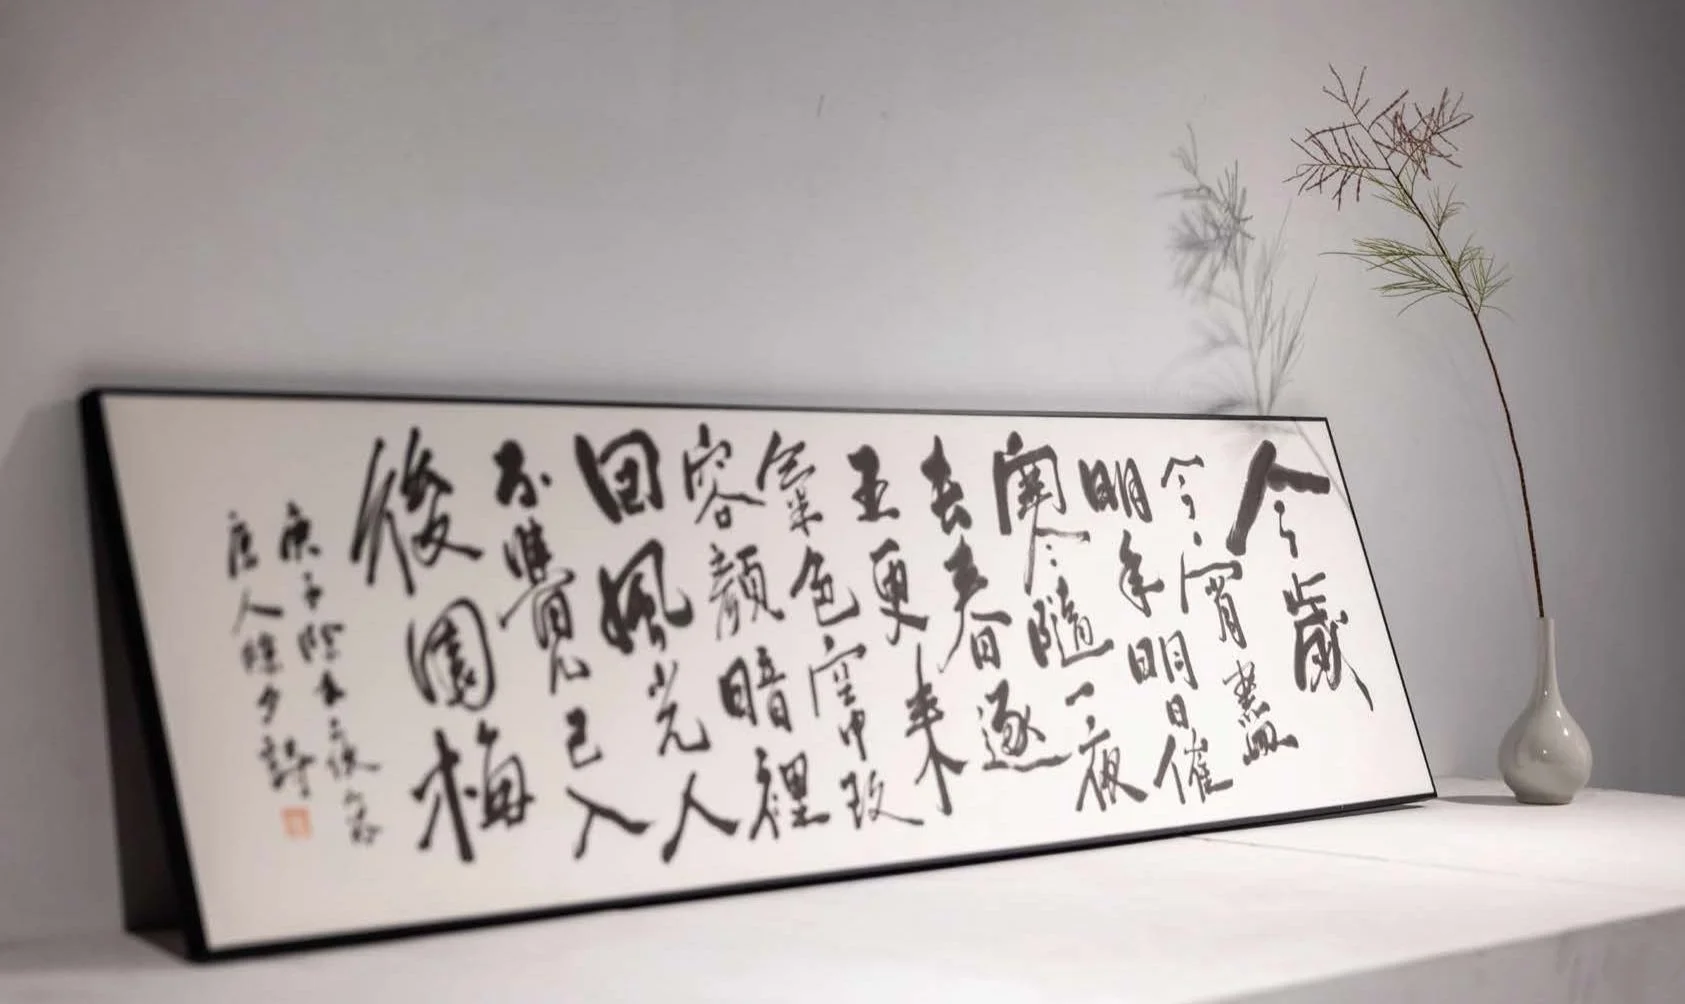 今歲
今宵盡
明年明日催
寒隨一夜
去春逐
五更來
氣色空中改
容顏暗裡
回風光人
不覺已入
後園梅
庚子除
唐人除夕詩